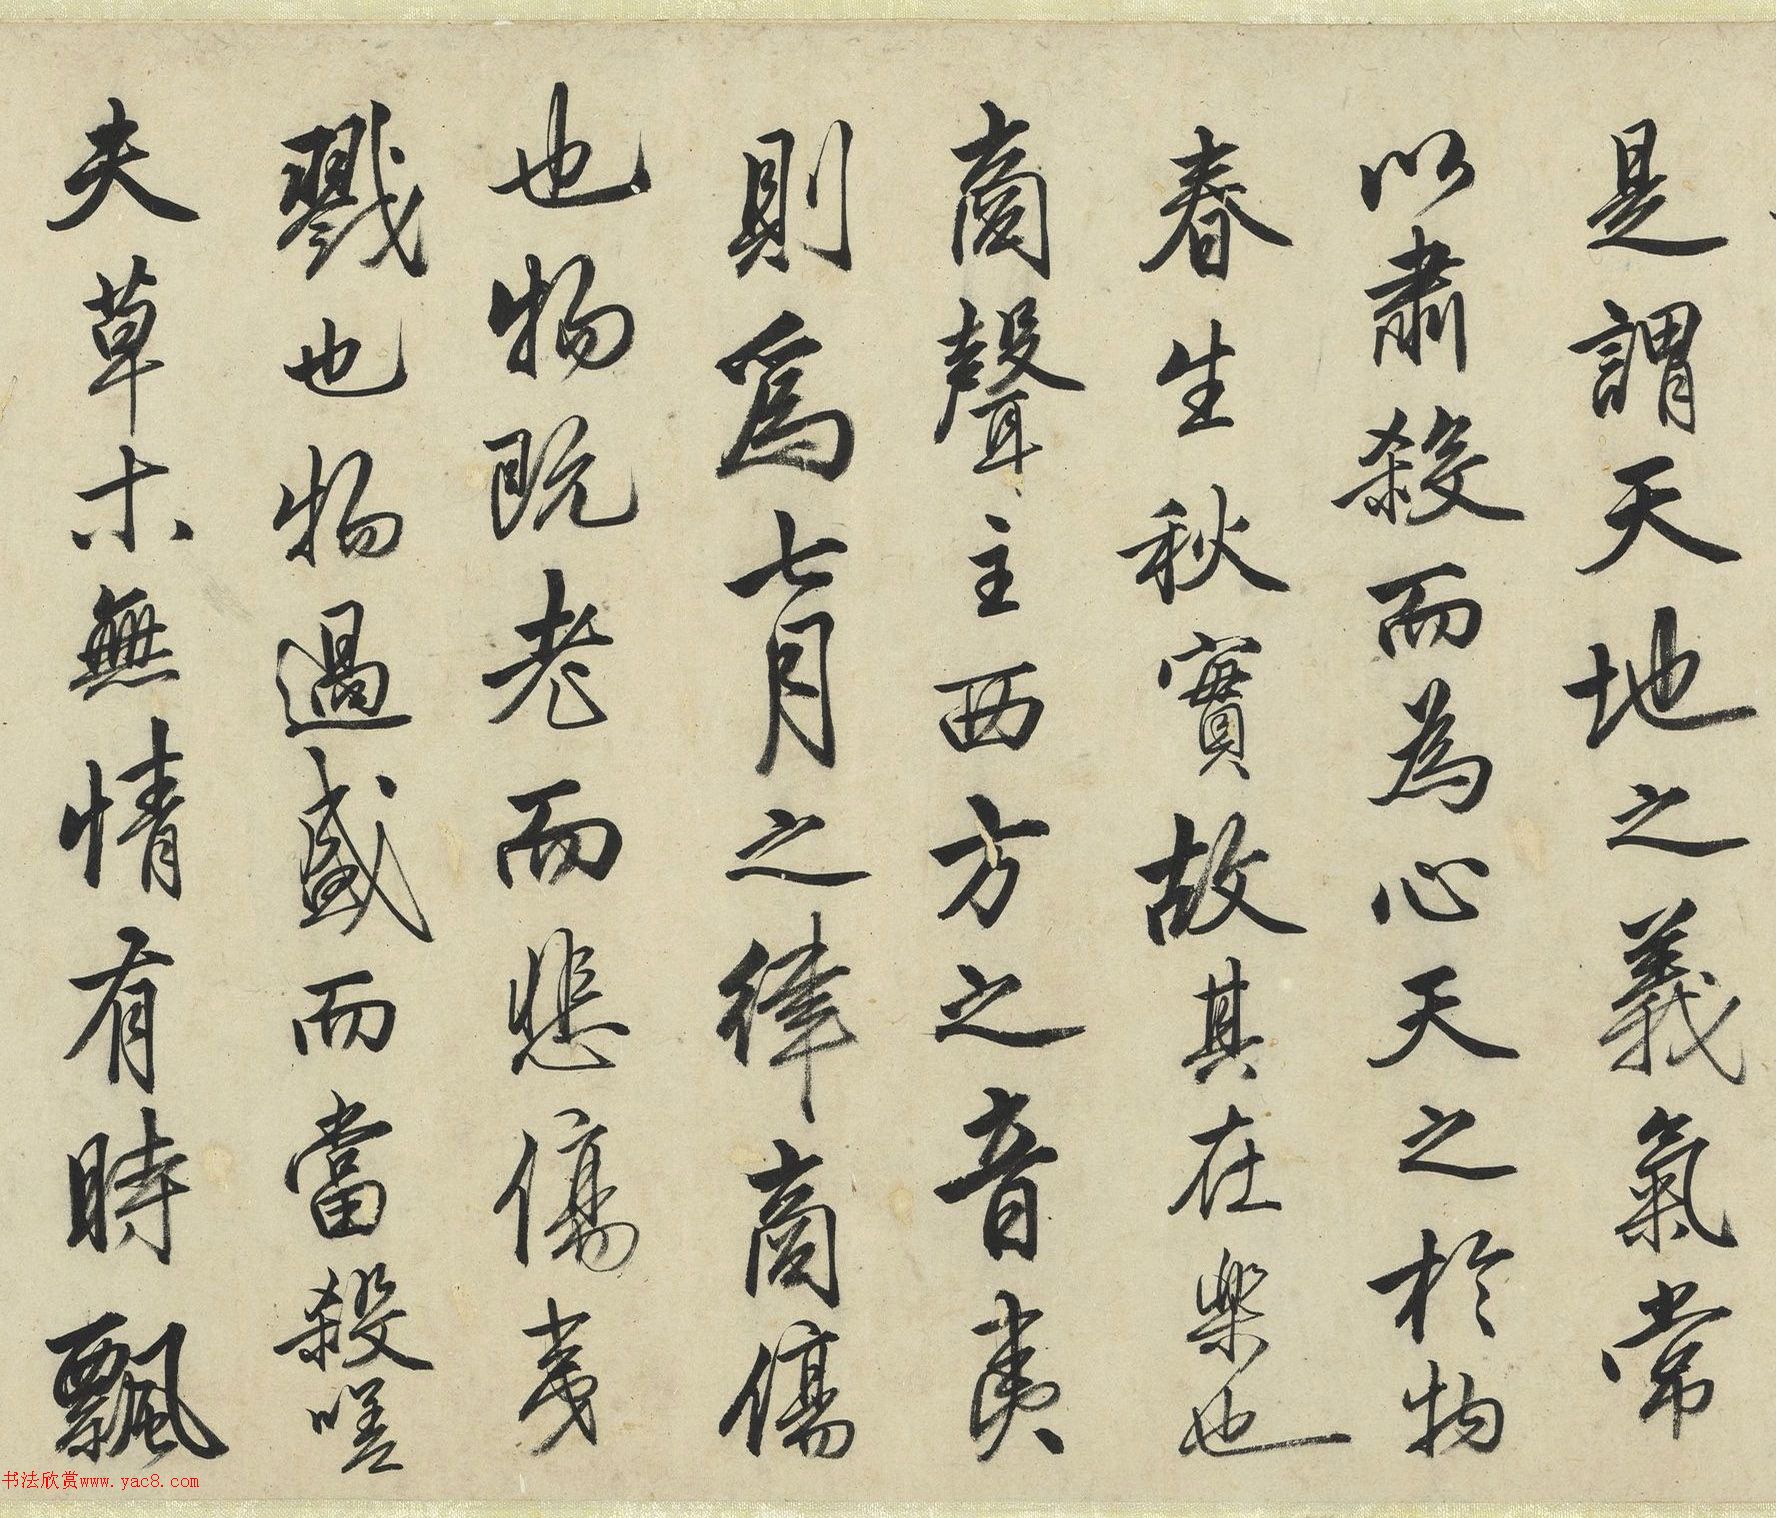 是謂天地之義氣常
以肅殺而為心天之於物
春生秋實故其在樂也
商聲主西方之音夷
則爲七月之律商傷
也物既老而悲傷夷
戮也物過盛而當殺嗟
夫草木無情有時飄
书法欣赏www.yac8.com